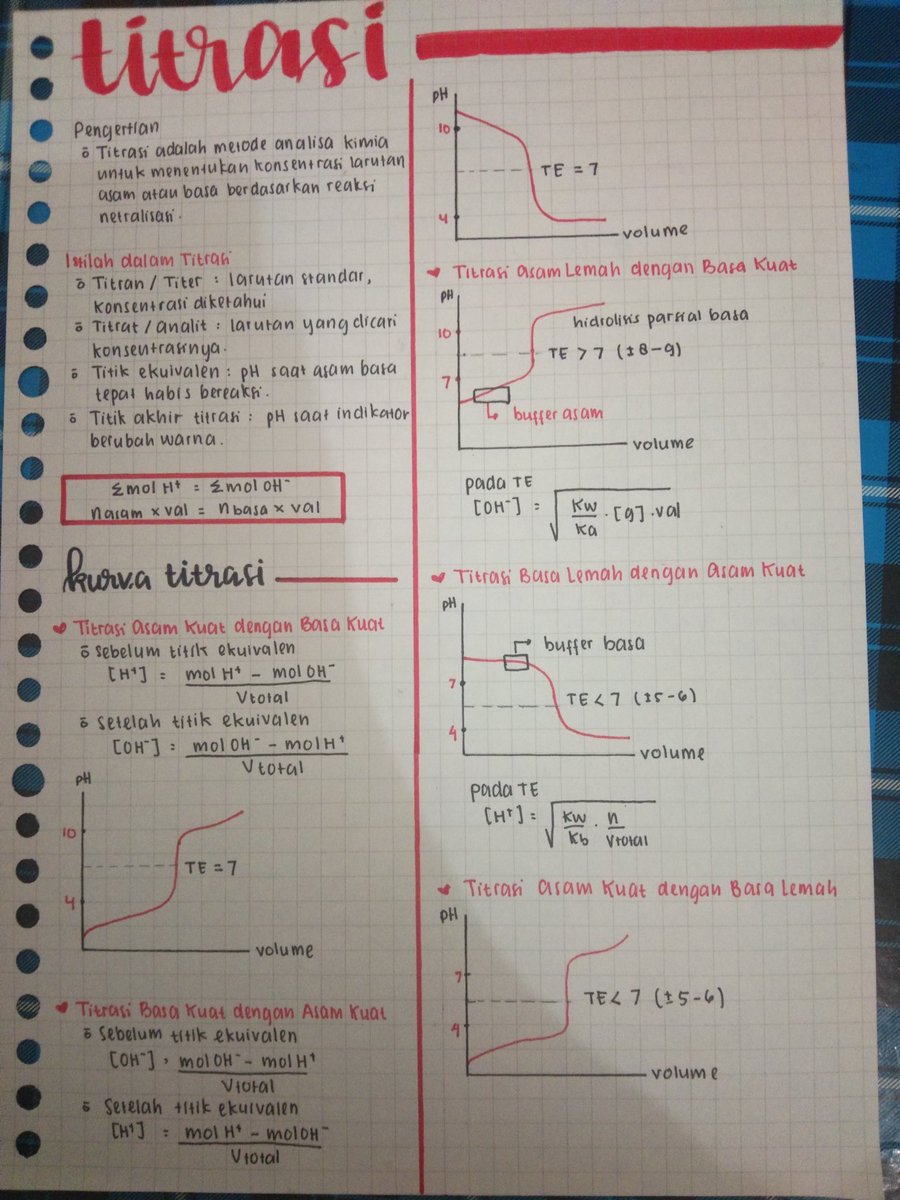 titrasi
Pengertian
ō Titrasi adalah metode analisa kimia
untuk menentukan konsentrasi larutan
asam atau basa berdasarkan reaksi
netralisasi.
Istilah dalam Titrasi
ō Titran / Titer : larutan standar,
konsentrasi diketahui
ō Titrat / analit : larutan yang dicari
konsentrasinya.
ō Titik ekuivalen : pH saat asam basa
tepat habis bereaksi.
ō Titik akhir titrasi : pH saat indikator
berubah warna.
Σmol H⁺ = Σmol OH⁻
nasam × val = nbasa × val
kurva titrasi
♥ Titrasi Asam Kuat dengan Basa Kuat
ō sebelum titik ekuivalen
[H⁺] = mol H⁺ - mol OH⁻
Vtotal
ō setelah titik ekuivalen
[OH⁻] = mol OH⁻ - mol H⁺
Vtotal
pH
10
TE = 7
4
volume
♥ Titrasi Basa Kuat dengan Asam Kuat
ō Sebelum titik ekuivalen
[OH⁻] = mol OH⁻ - mol H⁺
Vtotal
ō Setelah titik ekuivalen
[H⁺] = mol H⁺ - mol OH⁻
Vtotal
pH
10
TE = 7
4
volume
♥ Titrasi Asam Lemah dengan Basa Kuat
pH
hidrolisis parsial basa
10
TE > 7 (±8-9)
7
buffer asam
volume
pada TE
[OH⁻] = √ Kw/Ka . [g] . val
♥ Titrasi Basa Lemah dengan Asam Kuat
pH
buffer basa
7
TE < 7 (±5-6)
4
volume
pada TE
[H⁺] = √ Kw/Kb . n/Vtotal
♥ Titrasi Asam Kuat dengan Basa Lemah
pH
7
TE < 7 (±5-6)
4
volume